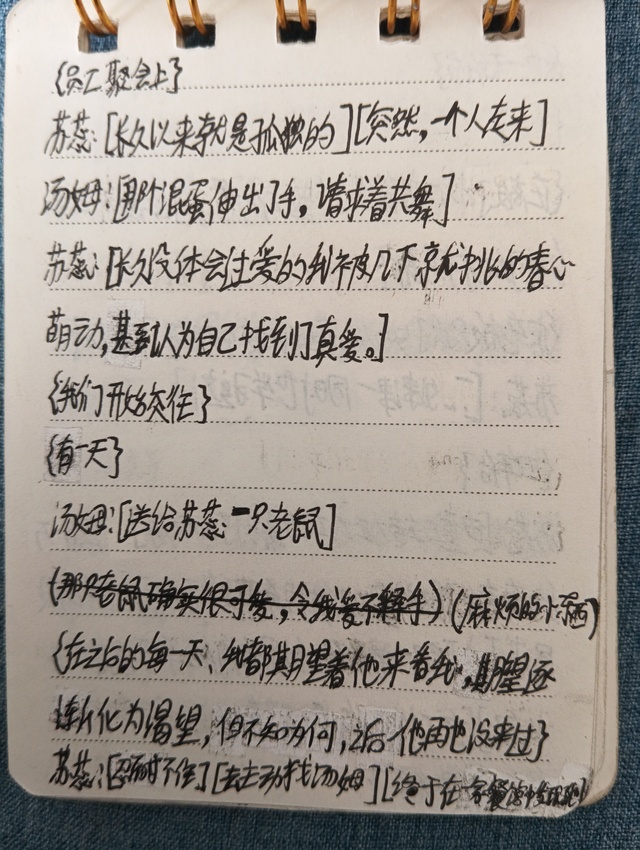 {员工聚会上}
苏蕊:[长久以来就是孤独的][突然,一个人走来]
汤姆:[那个混蛋伸出了手,请求着共舞]
苏蕊:[长久没体会过爱的我被几下就挑的春心
萌动,甚至认为自己找到了真爱。]
{我们开始交往}
{有一天}
汤姆:[送给苏蕊一只老鼠]
(那只老鼠确实很可爱,令我爱不释手)(麻烦的小东西)
{在之后的每一天、我都期望着他来看我,期望逐
渐化为渴望,但不知为何,之后他再也没来过}
苏蕊:[忍耐不住][去主动找汤姆][终于在一家餐馆中发现]